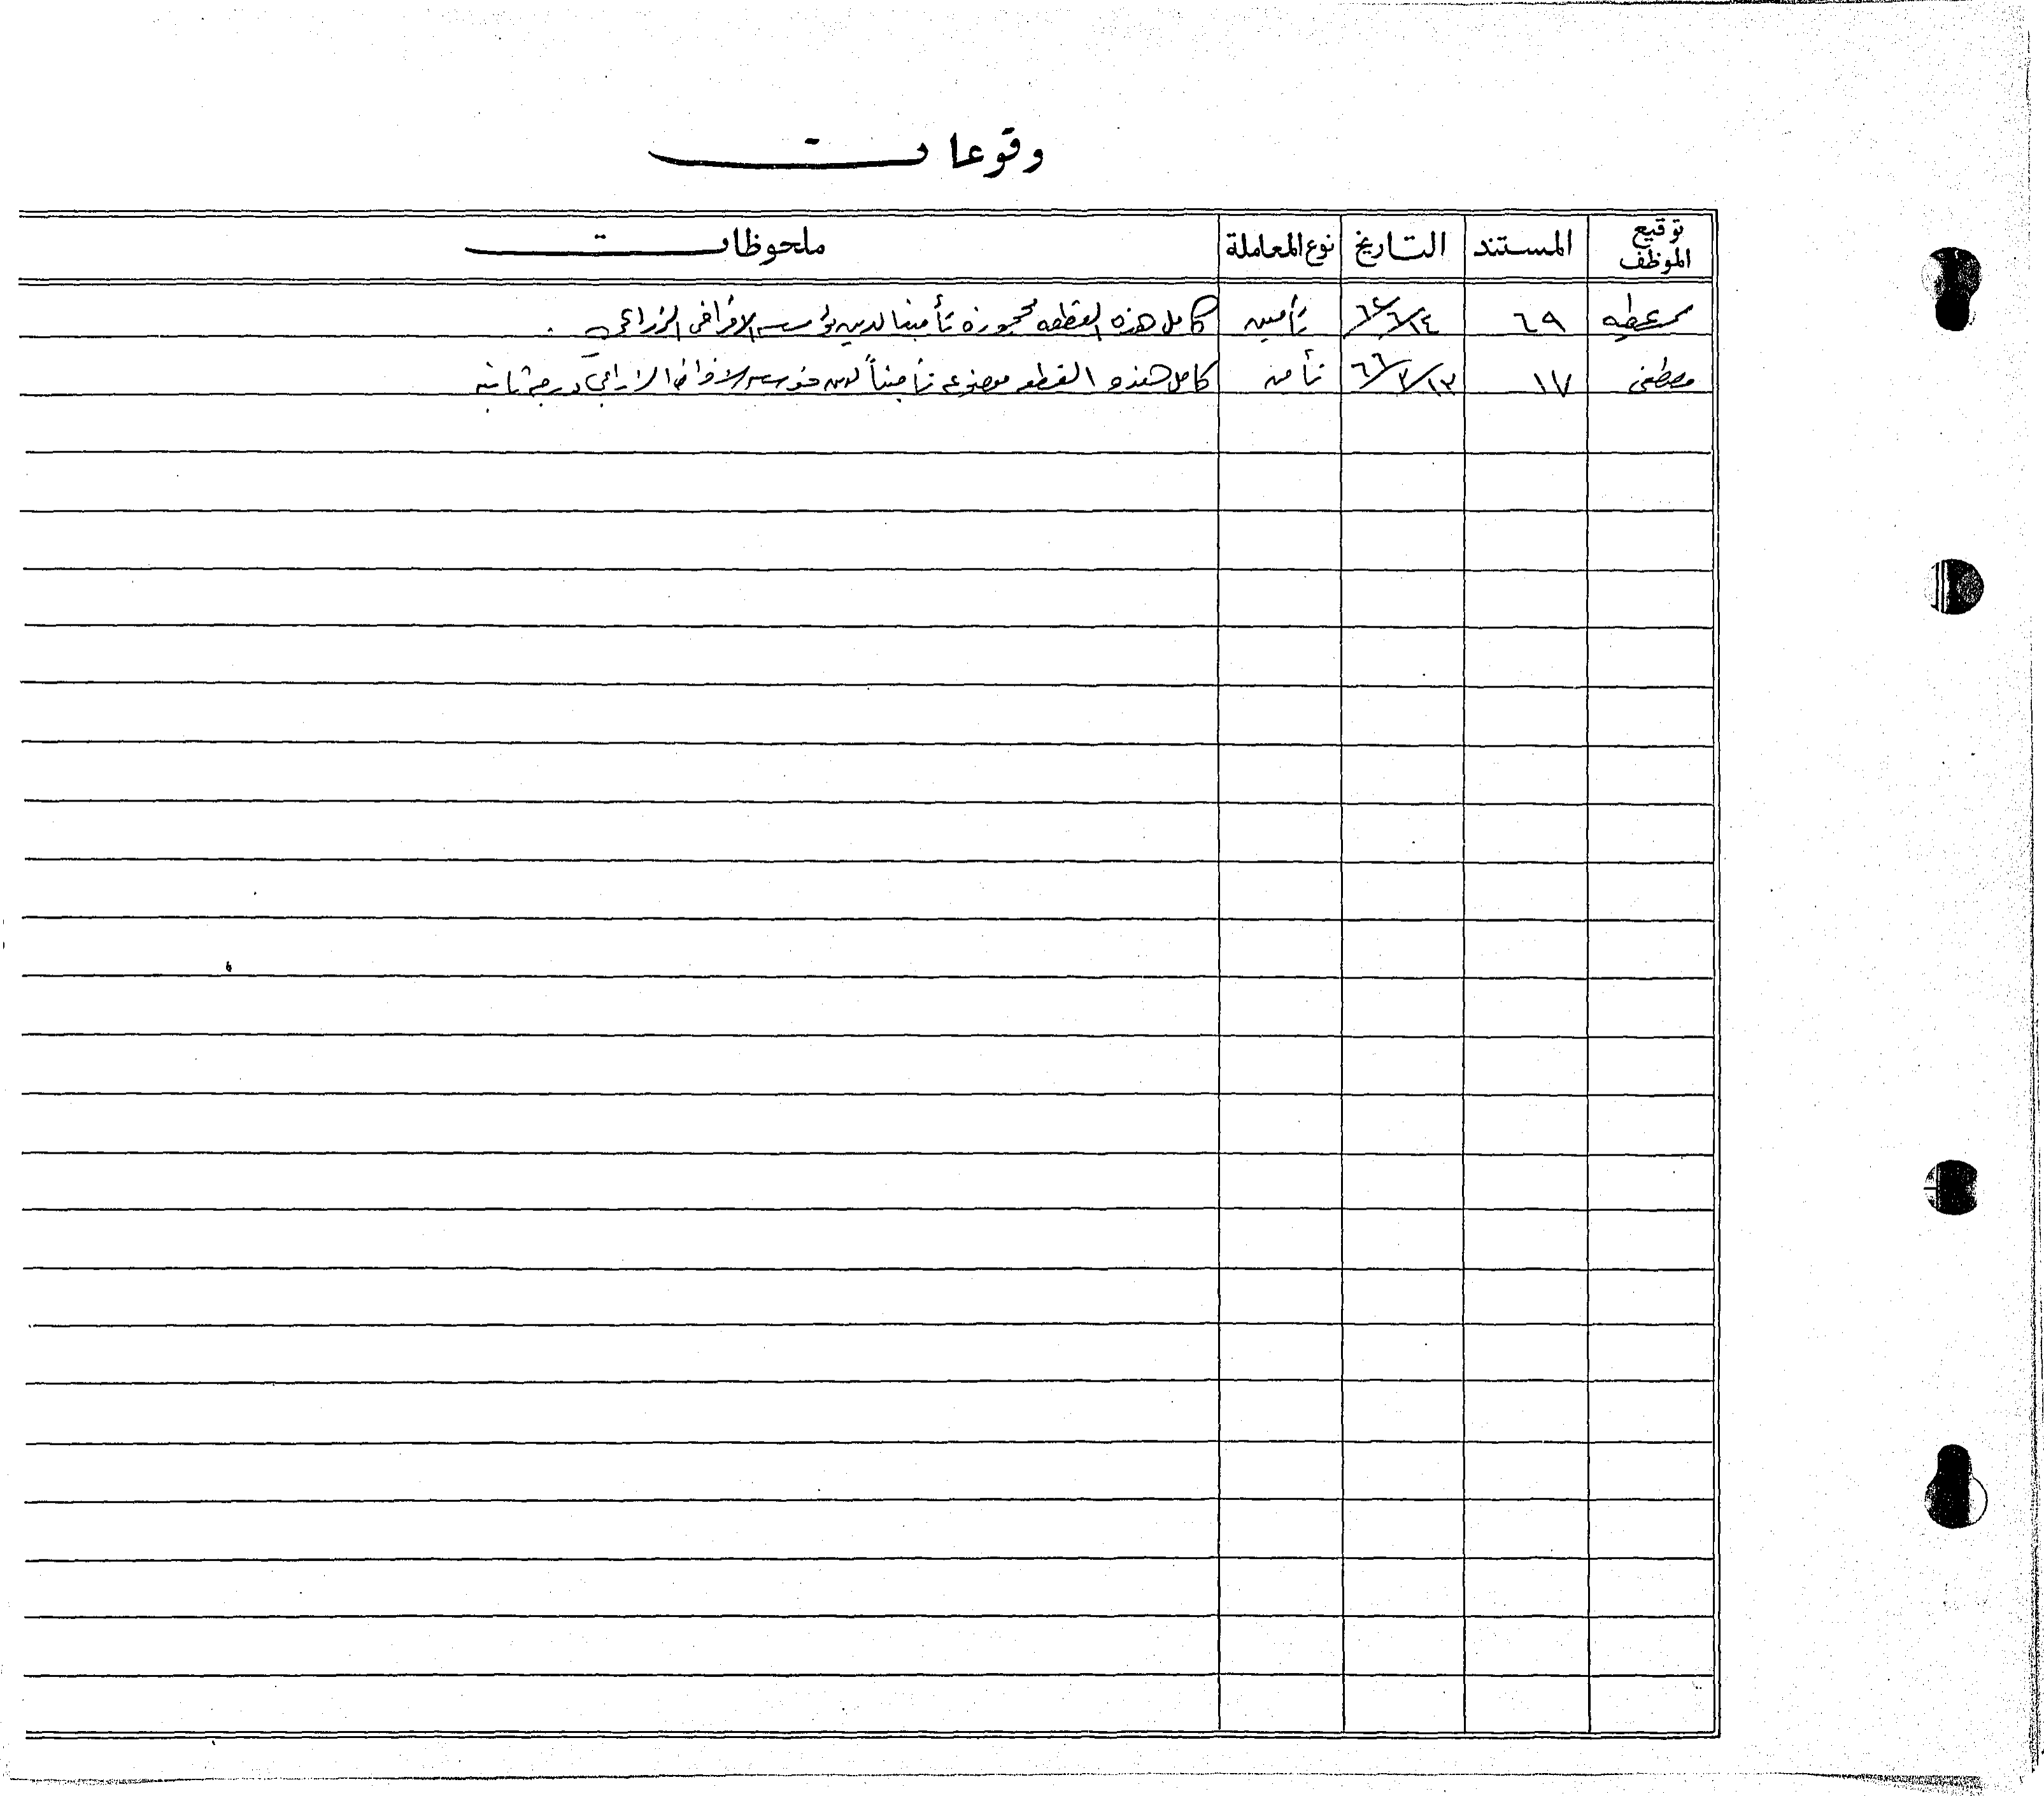 وقوعات
توقيع الموظف المستند التاريخ نوع المعاملة ملحوظات
عطيه ٦٩ ١٤/٦/٦٤ تأمين كامل هذه القطعه محجوزة تأمينا لدى مؤسسه الاقراض الزراعي .
مصطفى ١٧ ١٣/٢/٦٦ تأمين كامل هذه القطعه موضوعه تأميناً لدى مؤسسه الاقراض الزراعي درجة ثانيه